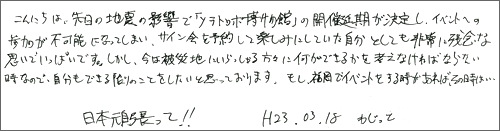 こんにちは、先日の地震の影響で「ソラトロボ博物館」の開催延期が決定し、イベントへの
参加が不可能になってしまい、サイン会を予約して楽しみにしていた自分としても非常に残念な
思いでいっぱいです。しかし、今は被災地にいらっしゃる方々に何ができるかを考えなければならない
時なので、自分もできる限りのことをしたいと思っております。もし、福岡でイベントをする時があればその時は…
日本元気張って!! H23.03.18 わじっと